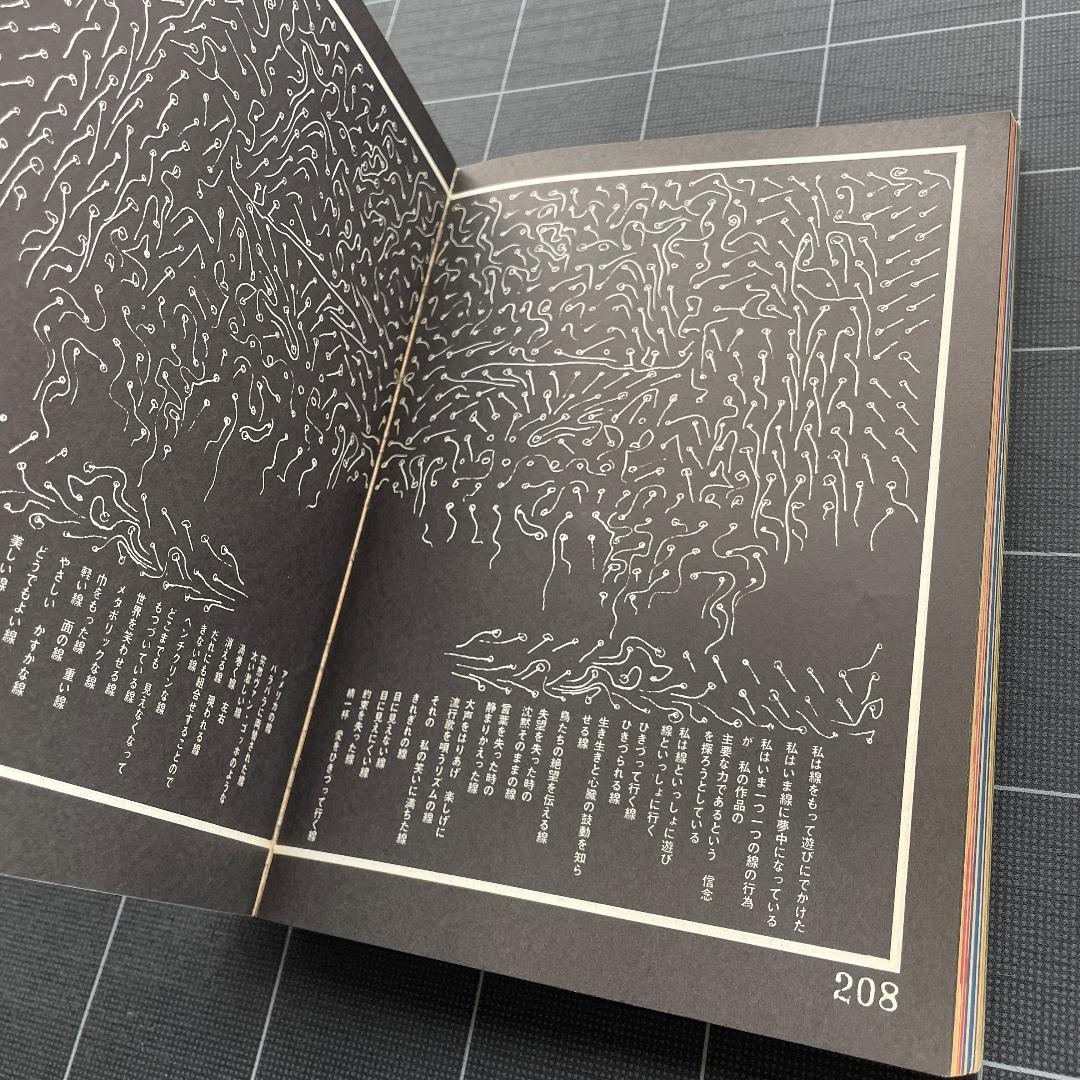 私は線をもって遊びにでかけた
私はいま線に夢中になっている
私はいま一つ一つの線の行為
が 私の作品の
主要な力であるという 信念
を探ろうとしている
私は線といっしょに遊び
線といっしょに行く
ひきづって行く線
ひきづられる線
生き生きと心臓の鼓動を知ら
せる線
鳥たちの絶望を伝える線
失望を失った時の
沈黙そのままの線
言葉を失った時の
静まりかえった線
大声をはりあげ 楽しげに
流行歌を唄うリズムの線
それの 私の笑いに満ちた線
きれぎれの線
目に見える線
目に見えない線
目に見えにくい線
約束を失った線
精一杯 愛をひきづって行く線
アメリカの線
太い激しい線
渦巻く線 左右
消える線 現われる線
だれにも組合せすることので
きない線
ヘンチクリンな線
どこまでも 見えなくなって
もつづいている線
世界を笑わせる線
メタボリックな線
巾をもった線
軽い線 面の線 重い線
やさしい かすかな線
どうでもよい線
美しい線
208